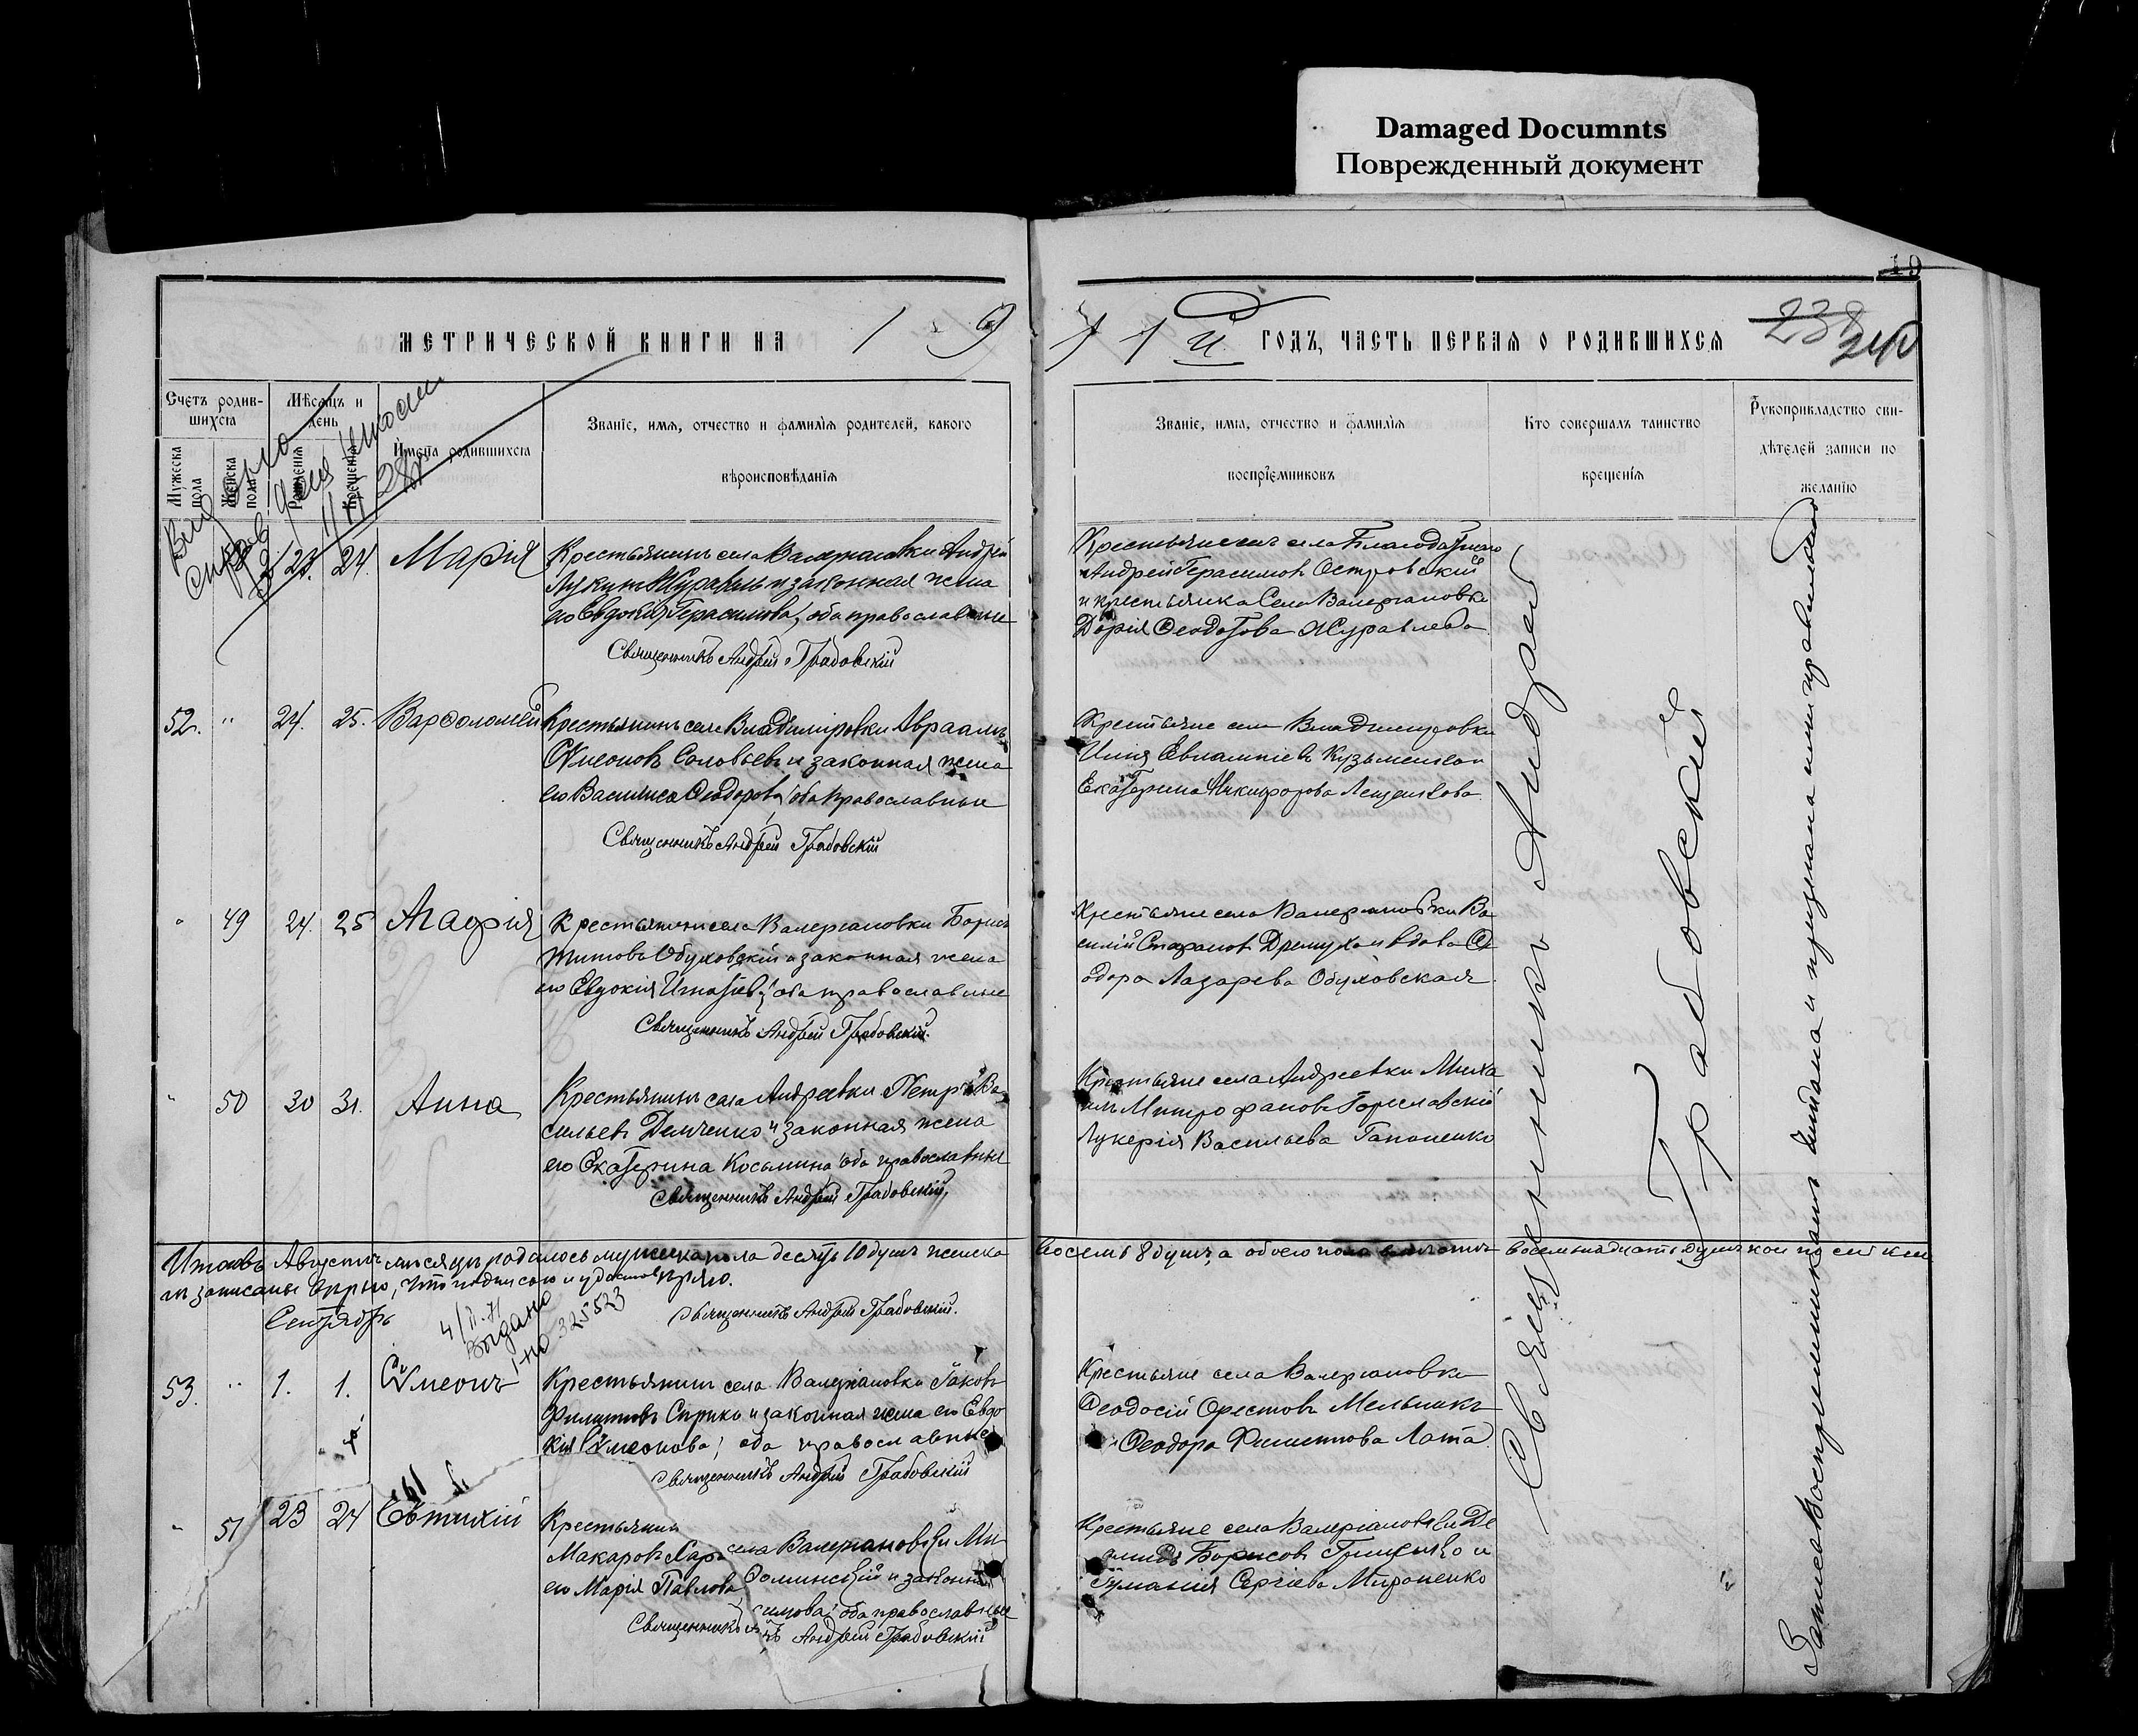 Damaged Documnts
Поврежденный документ
19
МЕТРИЧЕСКОЙ КНИГИ НА 19
11й ГОДЪ, ЧАСТЬ ПЕРВАЯ О РОДИВШИХСЯ
238
Счетъ родив-
шихся
Мужеска пола
Женска пола
Мѣсяцъ и
день
рожденія
крещенія
Имена родившихся
Званіе, имя, отчество и фамилія родителей, какого
вѣроисповѣданія
Званіе, имя, отчество и фамилія
воспріемниковъ
Кто совершалъ таинство
крещенія
Рукоприкладство сви-
дѣтелей записи по
желанію
23. 24. Марія
Крестьянинъ села Валеріановки Андрей
Журавль и законная жена
его Евдокія Герасимова, оба православные
Священникъ Андрей Грабовскій
Крестьянинъ села Благодатного
Андрей Герасимовъ Островскій
и крестьянка села Валеріановки
Дарія Ѳеодотова Журавлева
52. " 24. 25. Варѳоломей
Крестьянинъ села Владиміровки Авраамъ
Сѵмеоновъ Соловьевъ и законная жена
его Василиса Ѳеодорова, оба православные
Священникъ Андрей Грабовскій
Крестьяне села Владимировки
Илія Евлампіевъ Кузьменко и
Екатерина Никифорова Лещенкова
" 49 24. 25 Агафія
Крестьянинъ села Валеріановки Борисъ
Титовъ Обуховскій и законная жена
его Евдокія Игнатіева, оба православные
Священникъ Андрей Грабовскій.
Крестьяне села Валеріановки Ва
силій Стефановъ Дремуха и вдова Ѳе
одора Лазарева Обуховская
" 50 30 31. Анна
Крестьянинъ села Андреевки Петръ Ва
сильевъ Демченко и законная жена
его Екатерина Косьмина оба православные
Священникъ Андрей Грабовскій,
Крестьяне села Андреевки Миха
илъ Митрофановъ Гореславскій
Лукерія Васильева Гапоненко
Итого въ Августѣ мѣсяцѣ родилось мужеска пола десять 10 душъ женска
восемь 8 душъ, а обоего пола восемнадцать душъ кои по сей кни
гѣ записаны вѣрно, что подписью и удостовѣряю.
Священникъ Андрей Грабовскій.
Сентябрь
4/II.71
Выдано
I НО 325523
53. " 1. 1. Сѵмеонъ
Крестьянинъ села Валеріановки Іаковъ
Филиповъ Сирико и законная жена его Евдо
кія Сѵмеонова, оба православные
Священникъ Андрей Грабовскій
Крестьяне села Валеріановки
Ѳеодосій Орестовъ Мельникъ
Ѳеодора Филиппова Лата
" 51 23 24 Евтихій
Крестьянинъ
села Валеріановки Ми
Макаровъ
и законная
его Марія Павлова
оба православные
Священникъ
Андрей Грабовскій
Крестьяне села Валеріановки Де
мидъ Борисовъ Грищенко и
Сергіева Мироненко
Священникъ Андрей
Грабовскій
Запись воспріемникамъ читана и признана ими правильною